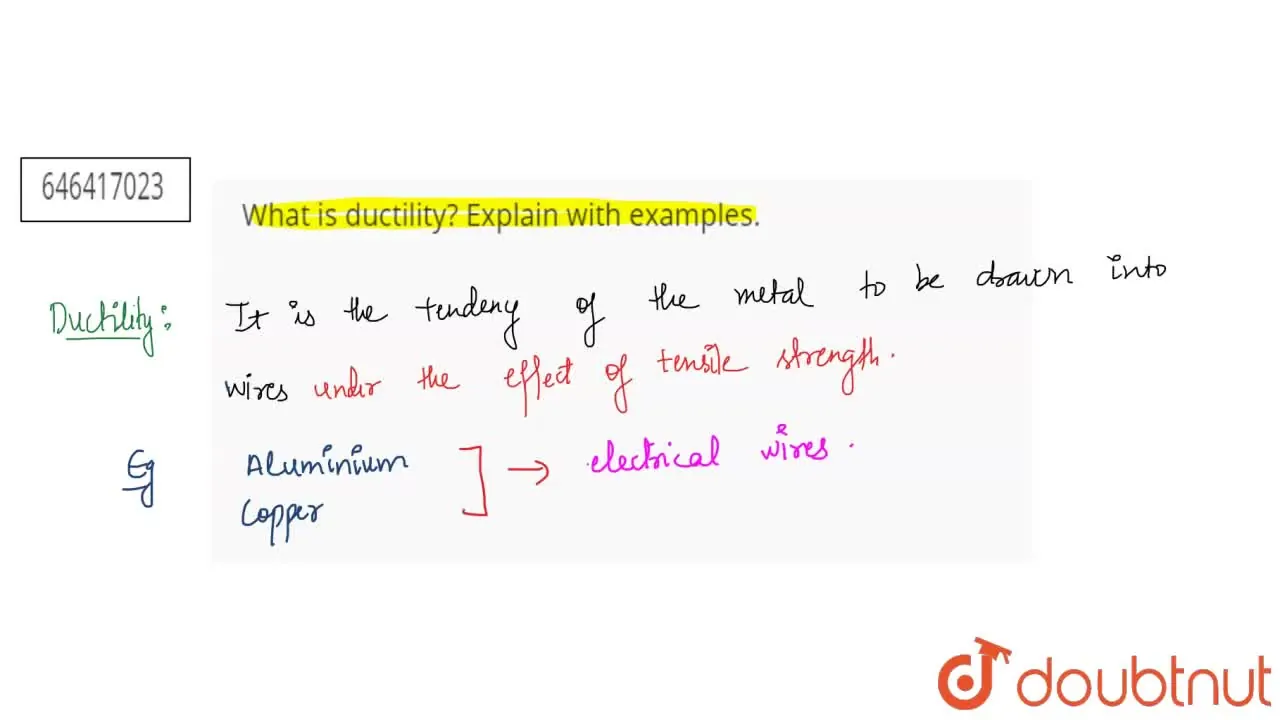 646417023
What is ductility? Explain with examples.
Ductility: It is the tendeny of the metal to be drawn into
wires under the effect of tensile strength.
Eg Aluminium ] → electrical wires.
Copper
doubtnut